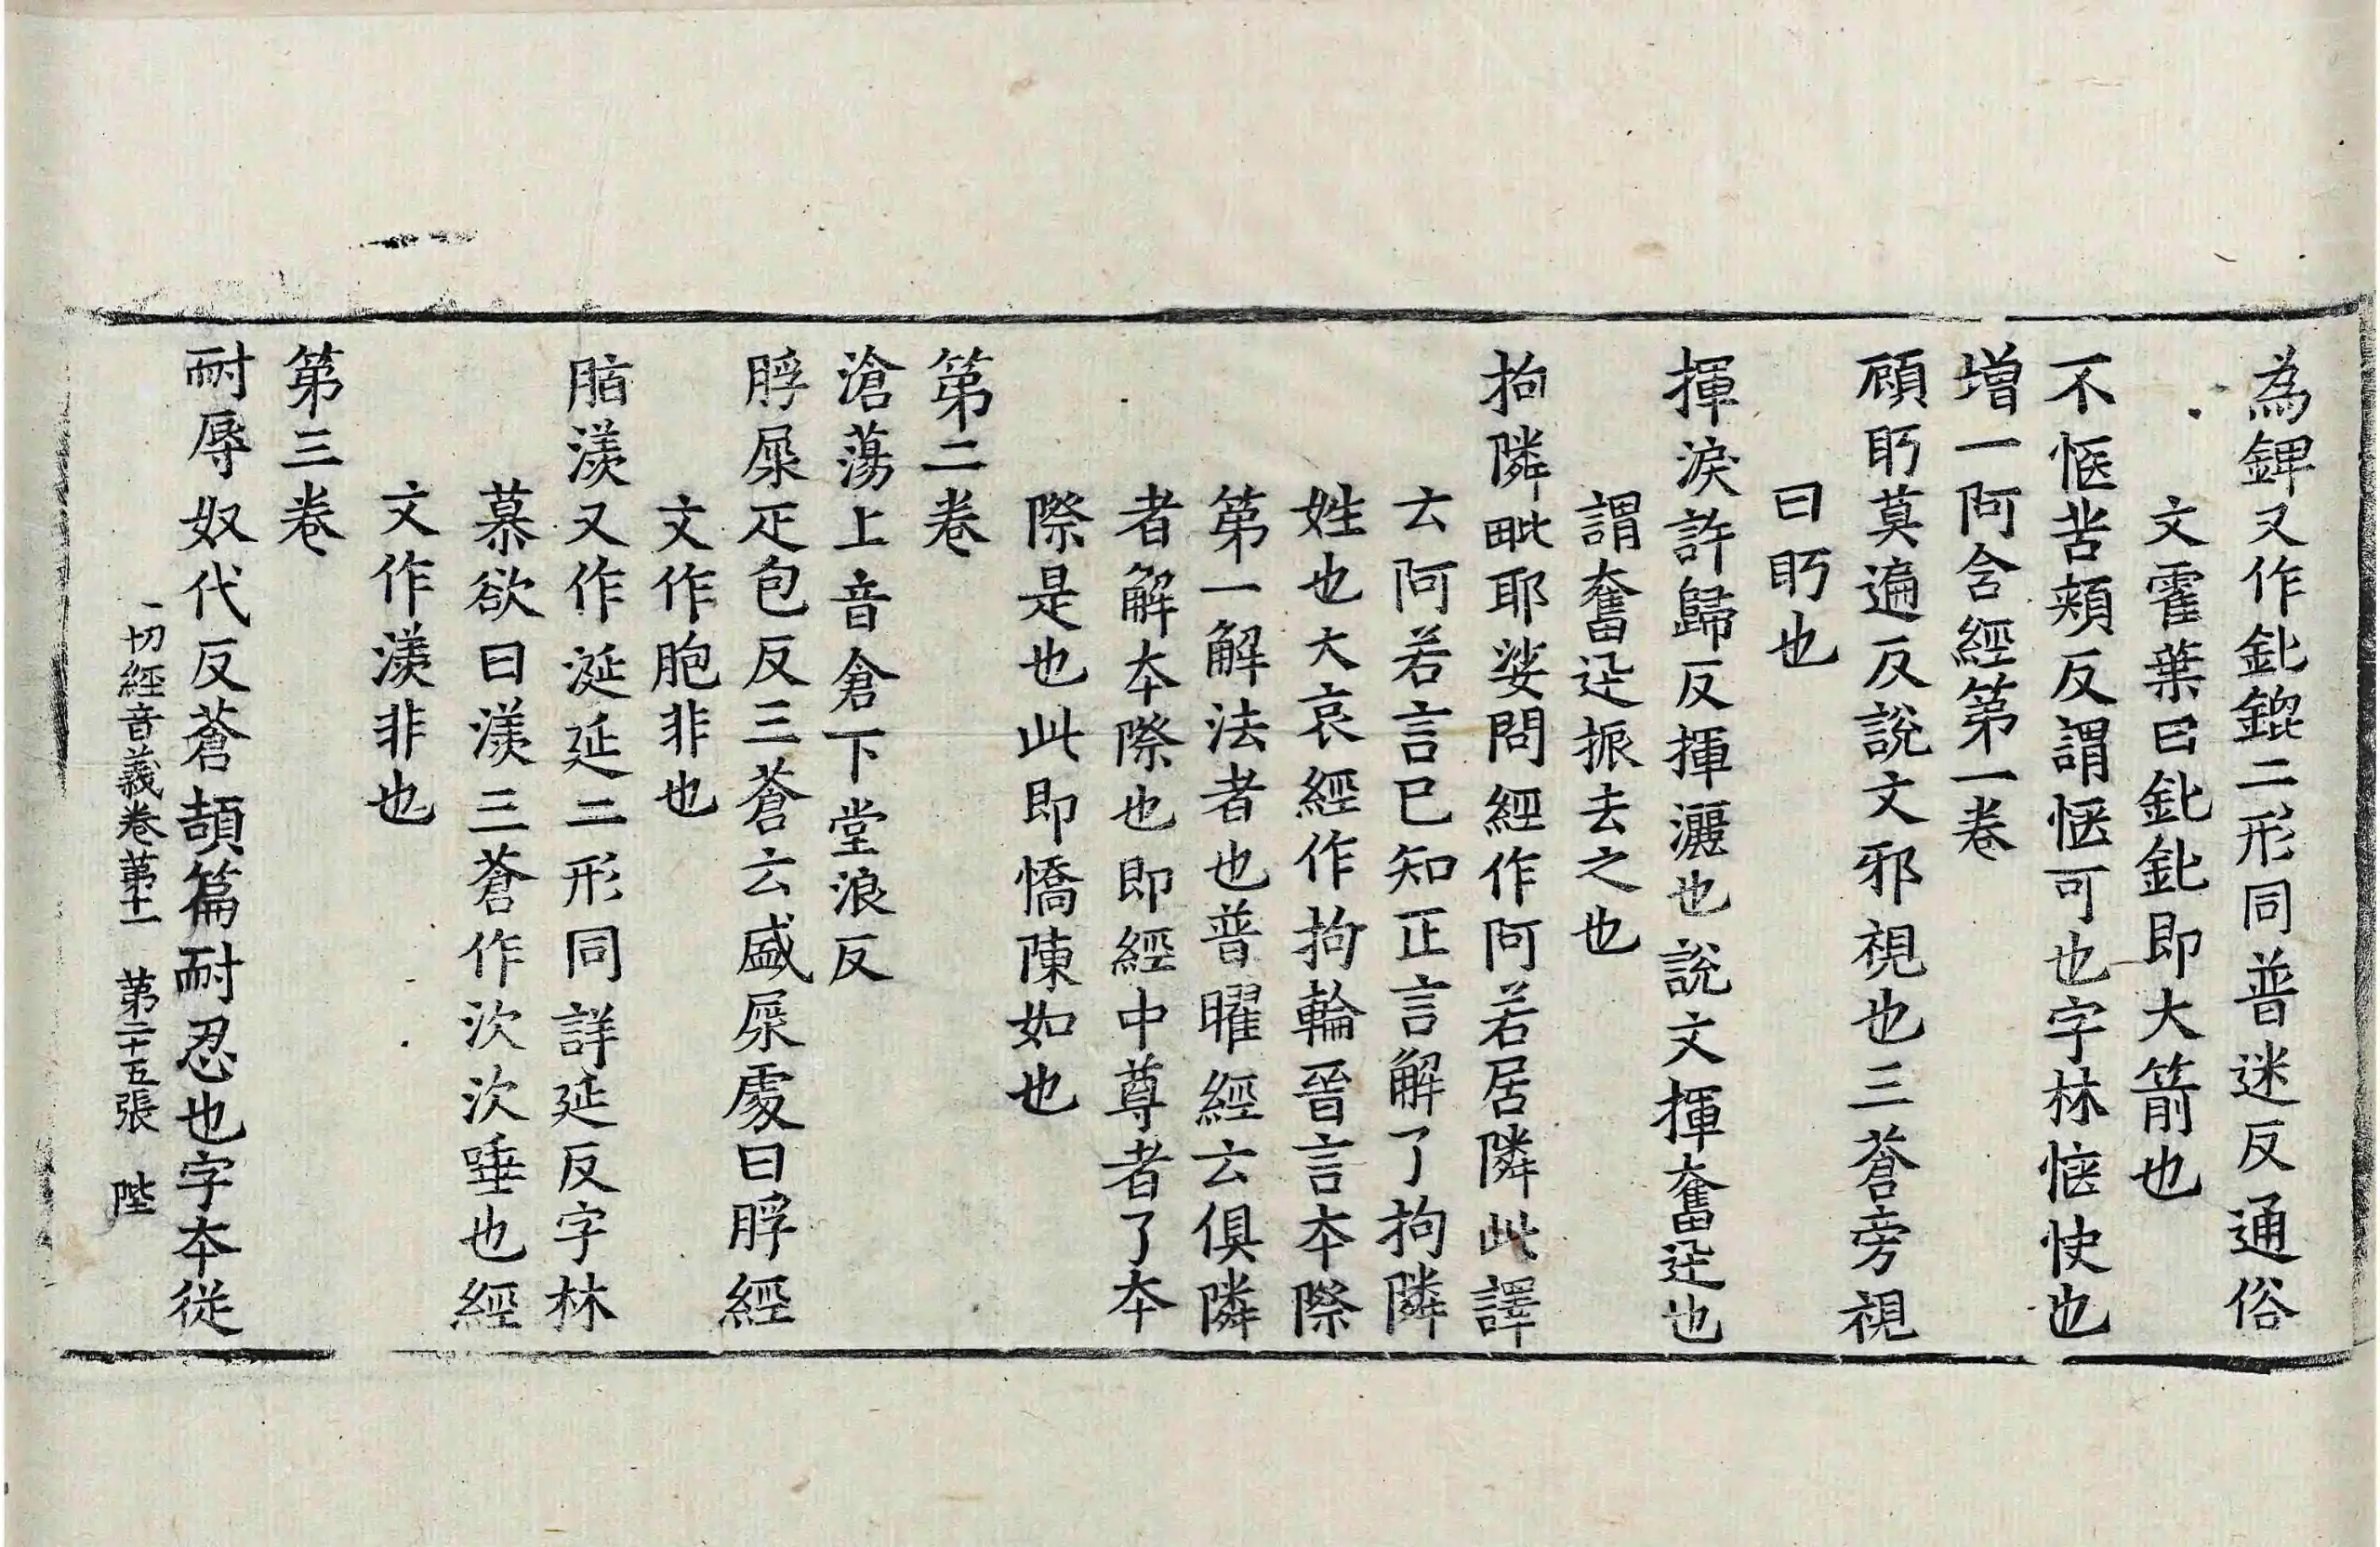 為錍又作鈚鎞二形同普迷反通俗
文霍葉曰鈚鈚即大箭也
不愜苦頰反謂愜可也字林愜快也
增一阿含經第一卷
頋眄莫遍反說文邪視也三蒼旁視
曰眄也
揮淚許歸反揮灑也說文揮奮迅也
謂奮迅振去之也
拘隣毗耶娑問經作阿若居隣此譯
云阿若言已知正言解了拘隣
姓也大哀經作拘輪晉言本際
第一解法者也普曜經云俱隣
者解本際也即經中尊者了本
際是也此即憍陳如也
第二卷
滄蕩上音倉下堂浪反
脬屎疋包反三蒼云盛屎處曰脬經
文作胞非也
脂㳄又作涎㳂二形同詳延反字林
慕欲曰㳄三蒼作㳄㳄唾也經
文作羡非也
第三卷
耐辱奴代反蒼頡篇耐忍也字本從
一切經音義卷第十一 第二十五張 陛